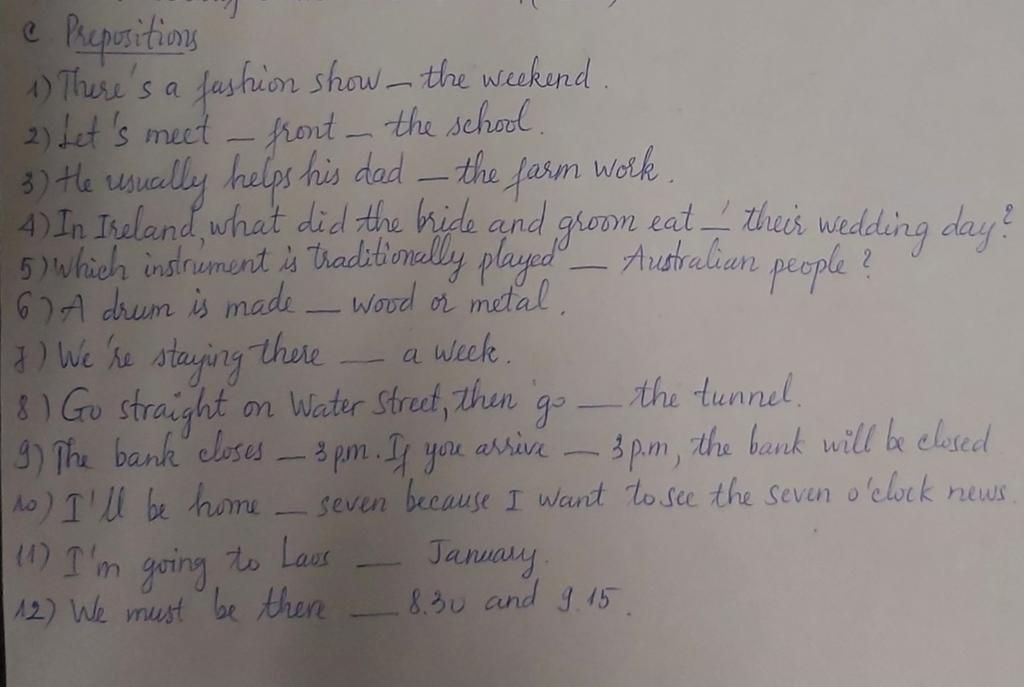 C. Prepositions
1) There's a fashion show _ the weekend.
2) Let's meet _ front _ the school.
3) He usually helps his dad _ the farm work.
4) In Ireland, what did the bride and groom eat _ their wedding day?
5) Which instrument is traditionally played _ Australian people?
6) A drum is made _ wood or metal.
7) We're staying there _ a week.
8) Go straight on Water Street, then go _ the tunnel.
9) The bank closes _ 3 p.m. If you arrive _ 3 p.m, the bank will be closed
10) I'll be home _ seven because I want to see the seven o'clock news.
11) I'm going to Laos _ January.
12) We must be there _ 8.30 and 9.15.